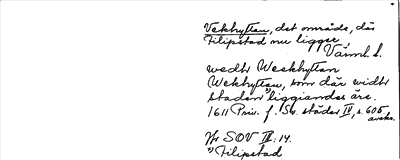 Vekhyttan, det område, där
Filipstad nu ligger
Värml. l.
wedtr Weekhyttan
Wekhyttan, som där widtr
staden ¹⁾ liggiandes äre.
1611 Priv. f. Sv. städer IV, s. 605
avskr.
Jfr SOV IX: 14.
¹⁾ Filipstad